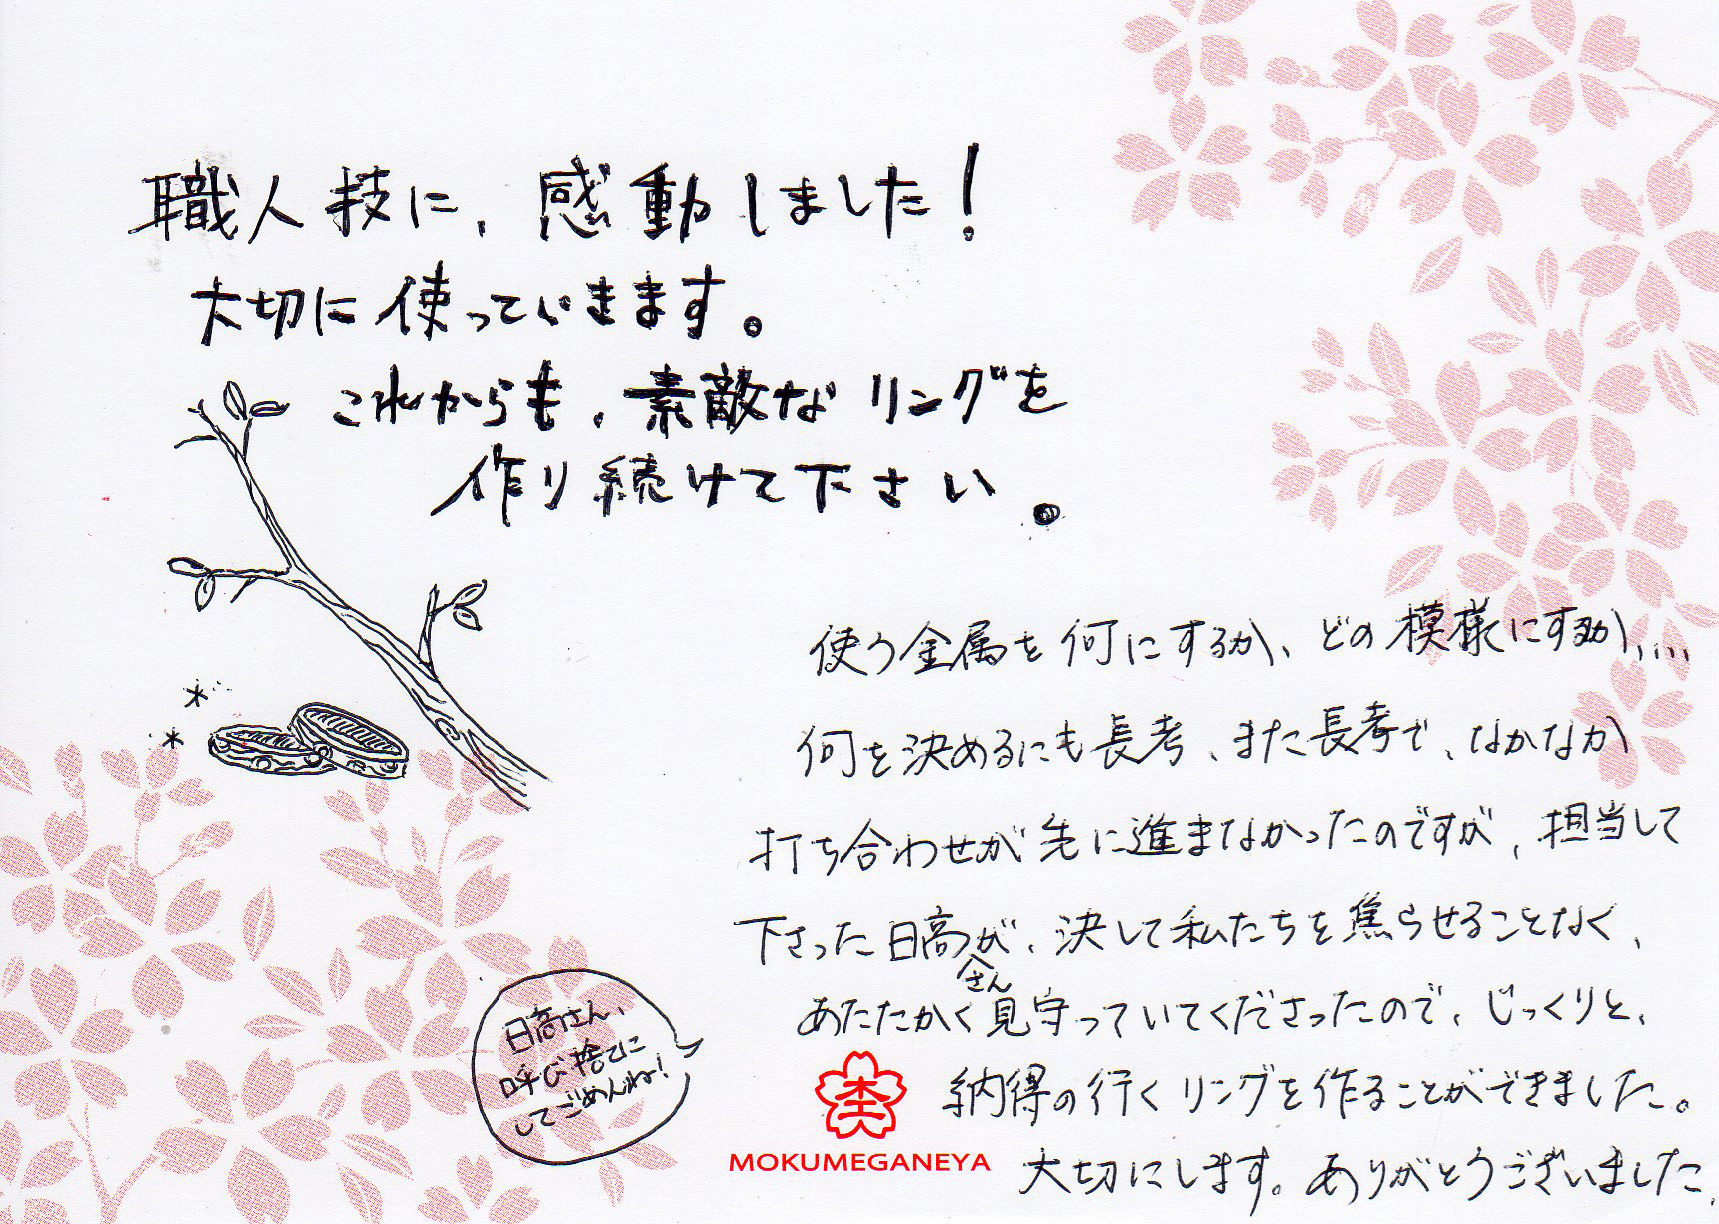 職人技に、感動しました！
大切に使っていきます。
これからも、素敵なリングを
作り続けて下さい。
使う金属を何にするか、どの模様にするか、、、、
何を決めるにも長考、また長考で、なかなか
打ち合わせが先に進まなかったのですが、担当して
下さった日高さんが、決して私たちを焦らせることなく、
あたたかく見守っていてくださったので、じっくりと、
納得の行くリングを作ることができました。
大切にします。ありがとうございました。
日高さん、
呼び捨てに
してごめんね！
MOKUMEGANEYA